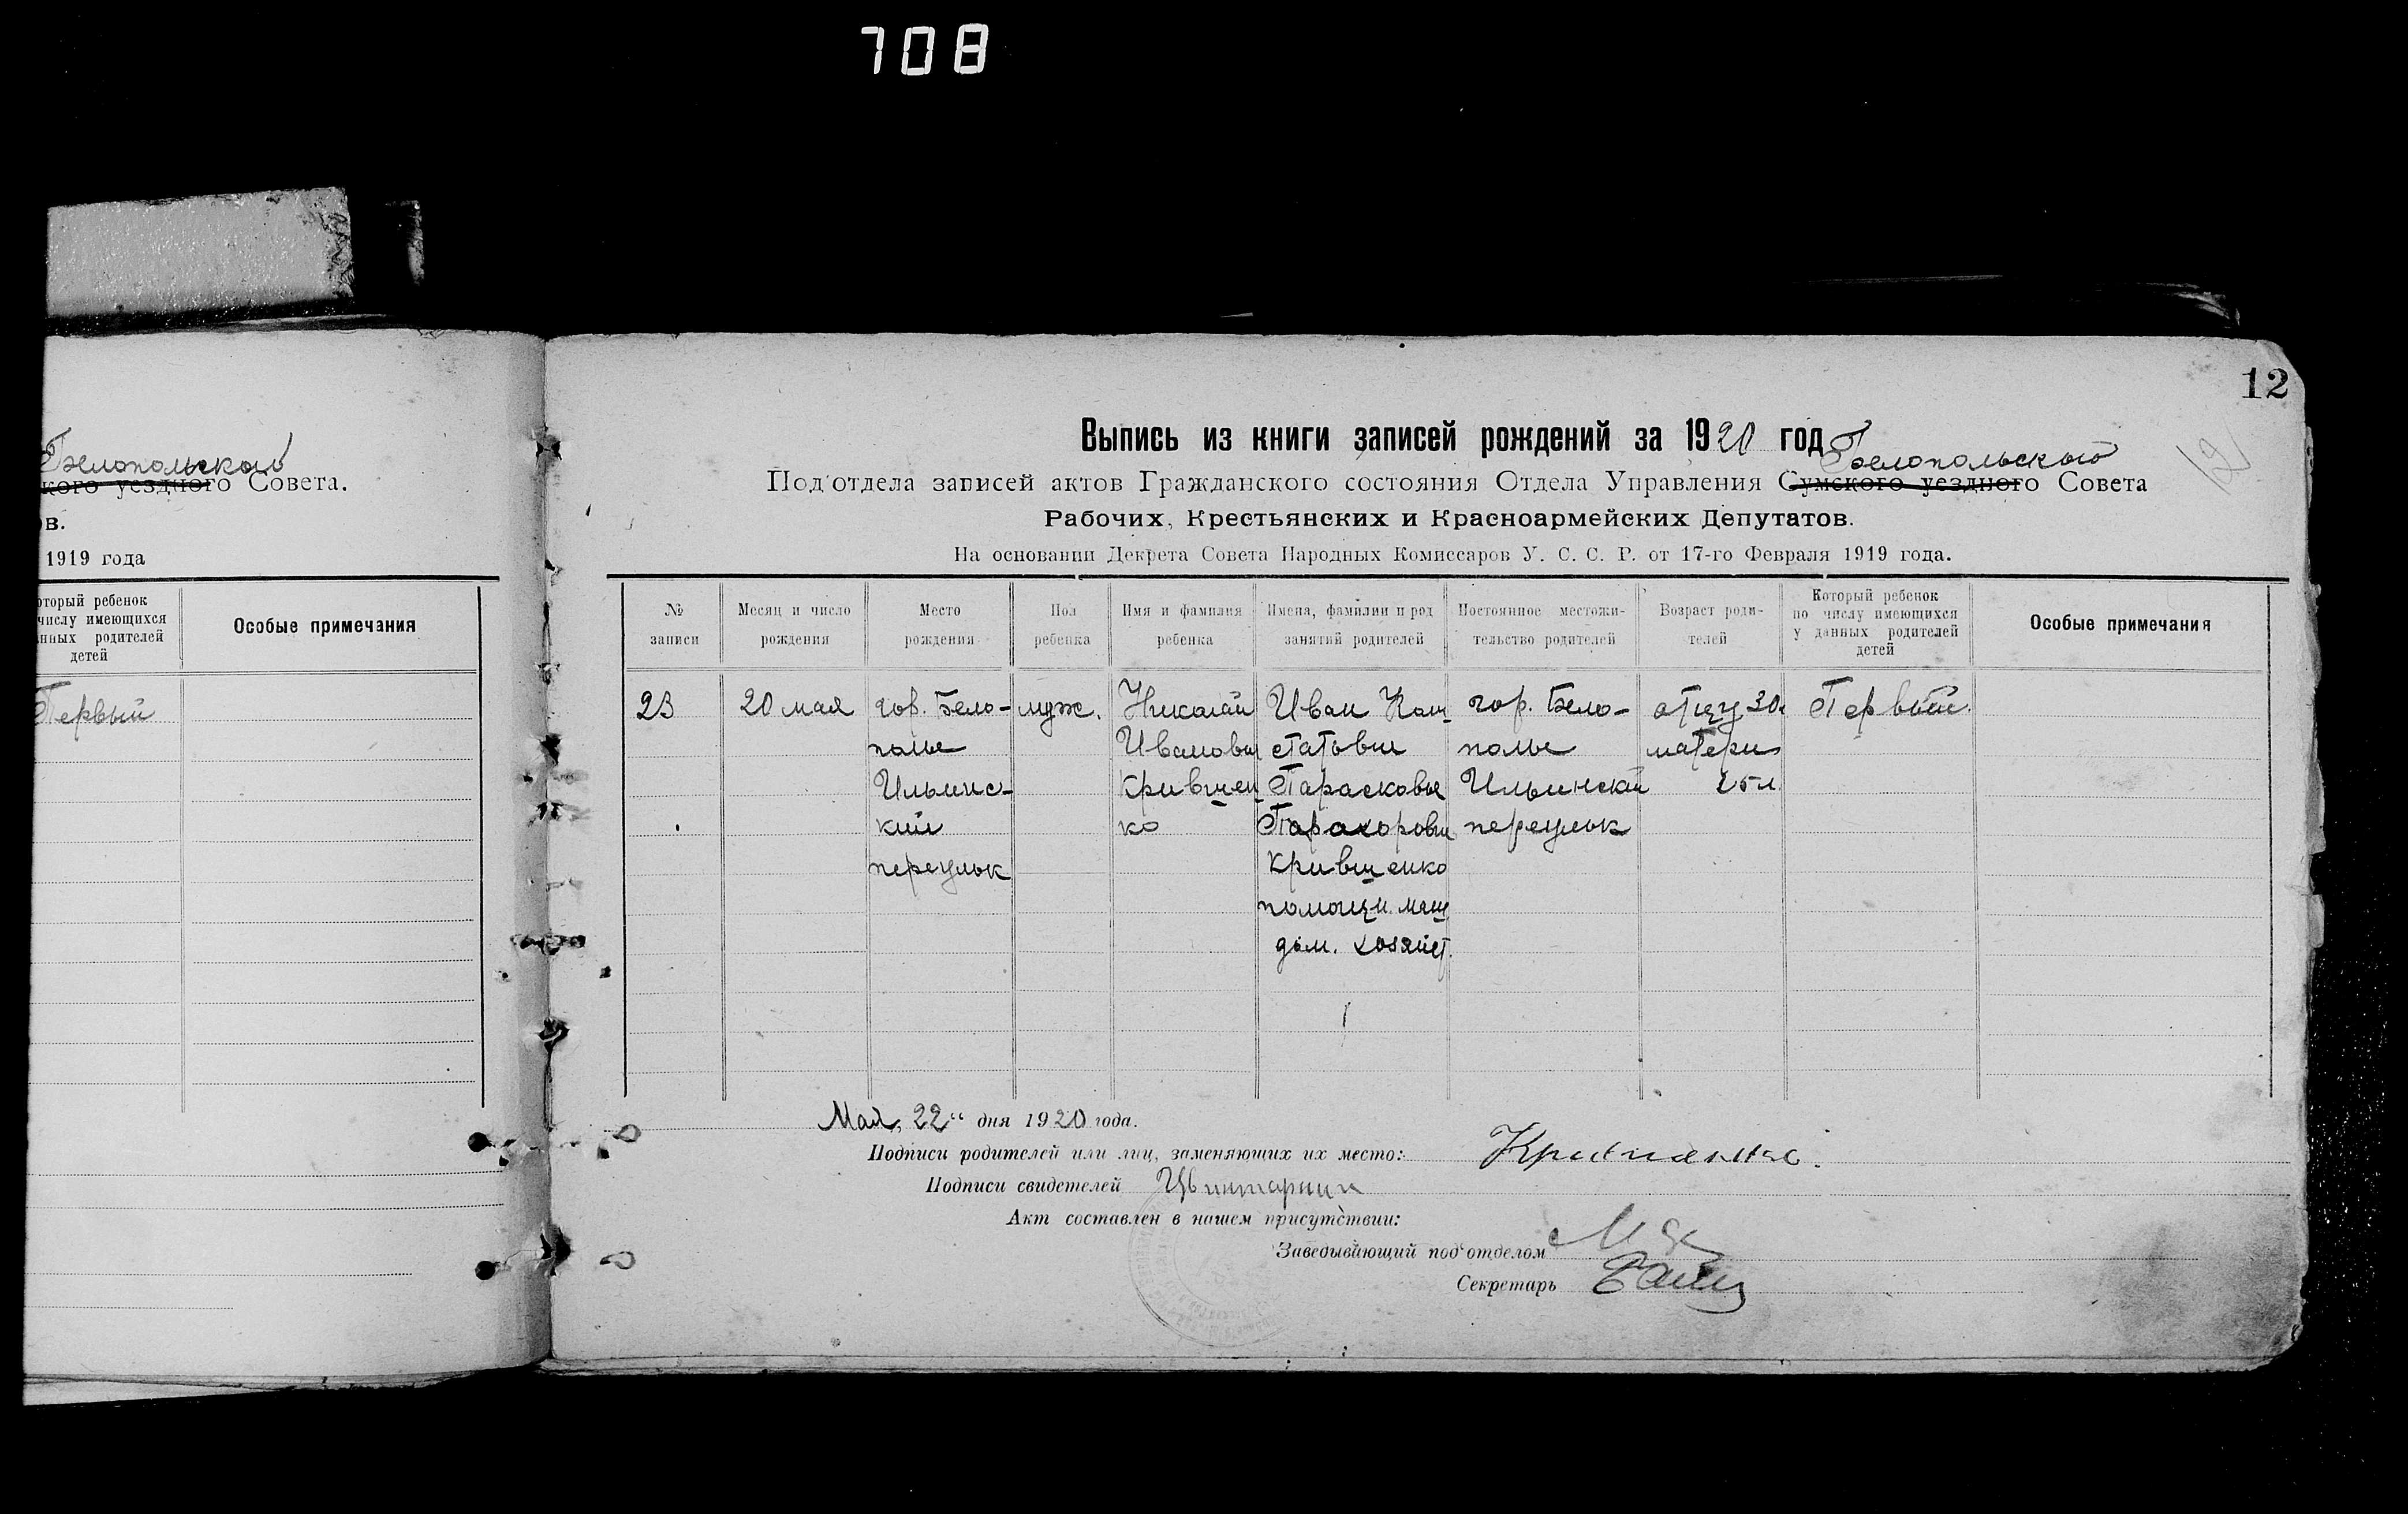 708
Белопольского
кого уездного Совета.
ов.
1919 года
оторый ребенок
числу имеющихся
нных родителей
детей
Особые примечания
Первый
12
12
Выпись из книги записей рождений за 1920 год
Белопольского
Под'отдела записей актов Гражданского состояния Отдела Управления Сумского уездного Совета
Рабочих, Крестьянских и Красноармейских Депутатов.
На основании Декрета Совета Народных Комиссаров У. С. С. Р. от 17-го Февраля 1919 года.
№
записи
Месяц и число
рождения
Место
рождения
Пол
ребенка
Имя и фамилия
ребенка
Имена, фамилии и род
занятий родителей
Постоянное местожи-
тельство родителей
Возраст роди-
телей
Который ребенок
по числу имеющихся
у данных родителей
детей
Особые примечания
23
20 мая
гор. Бело-
полье
Ильинс-
кий
переулок
муж.
Николай
Иванович
Крившен
ко
Иван Кон
статович
Парасковья
Крившенко
помощн. маш.
дом. хозяйст.
гор. Бело-
полье
Ильинский
переулок
отцу 30л
матери
25 л.
Первый.
Мая, 22" дня 1920 года.
Подписи родителей или лиц, заменяющих их место:
Подписи свидетелей
Акт составлен в нашем присутствии:
Заведывающий под'отделом
Секретарь